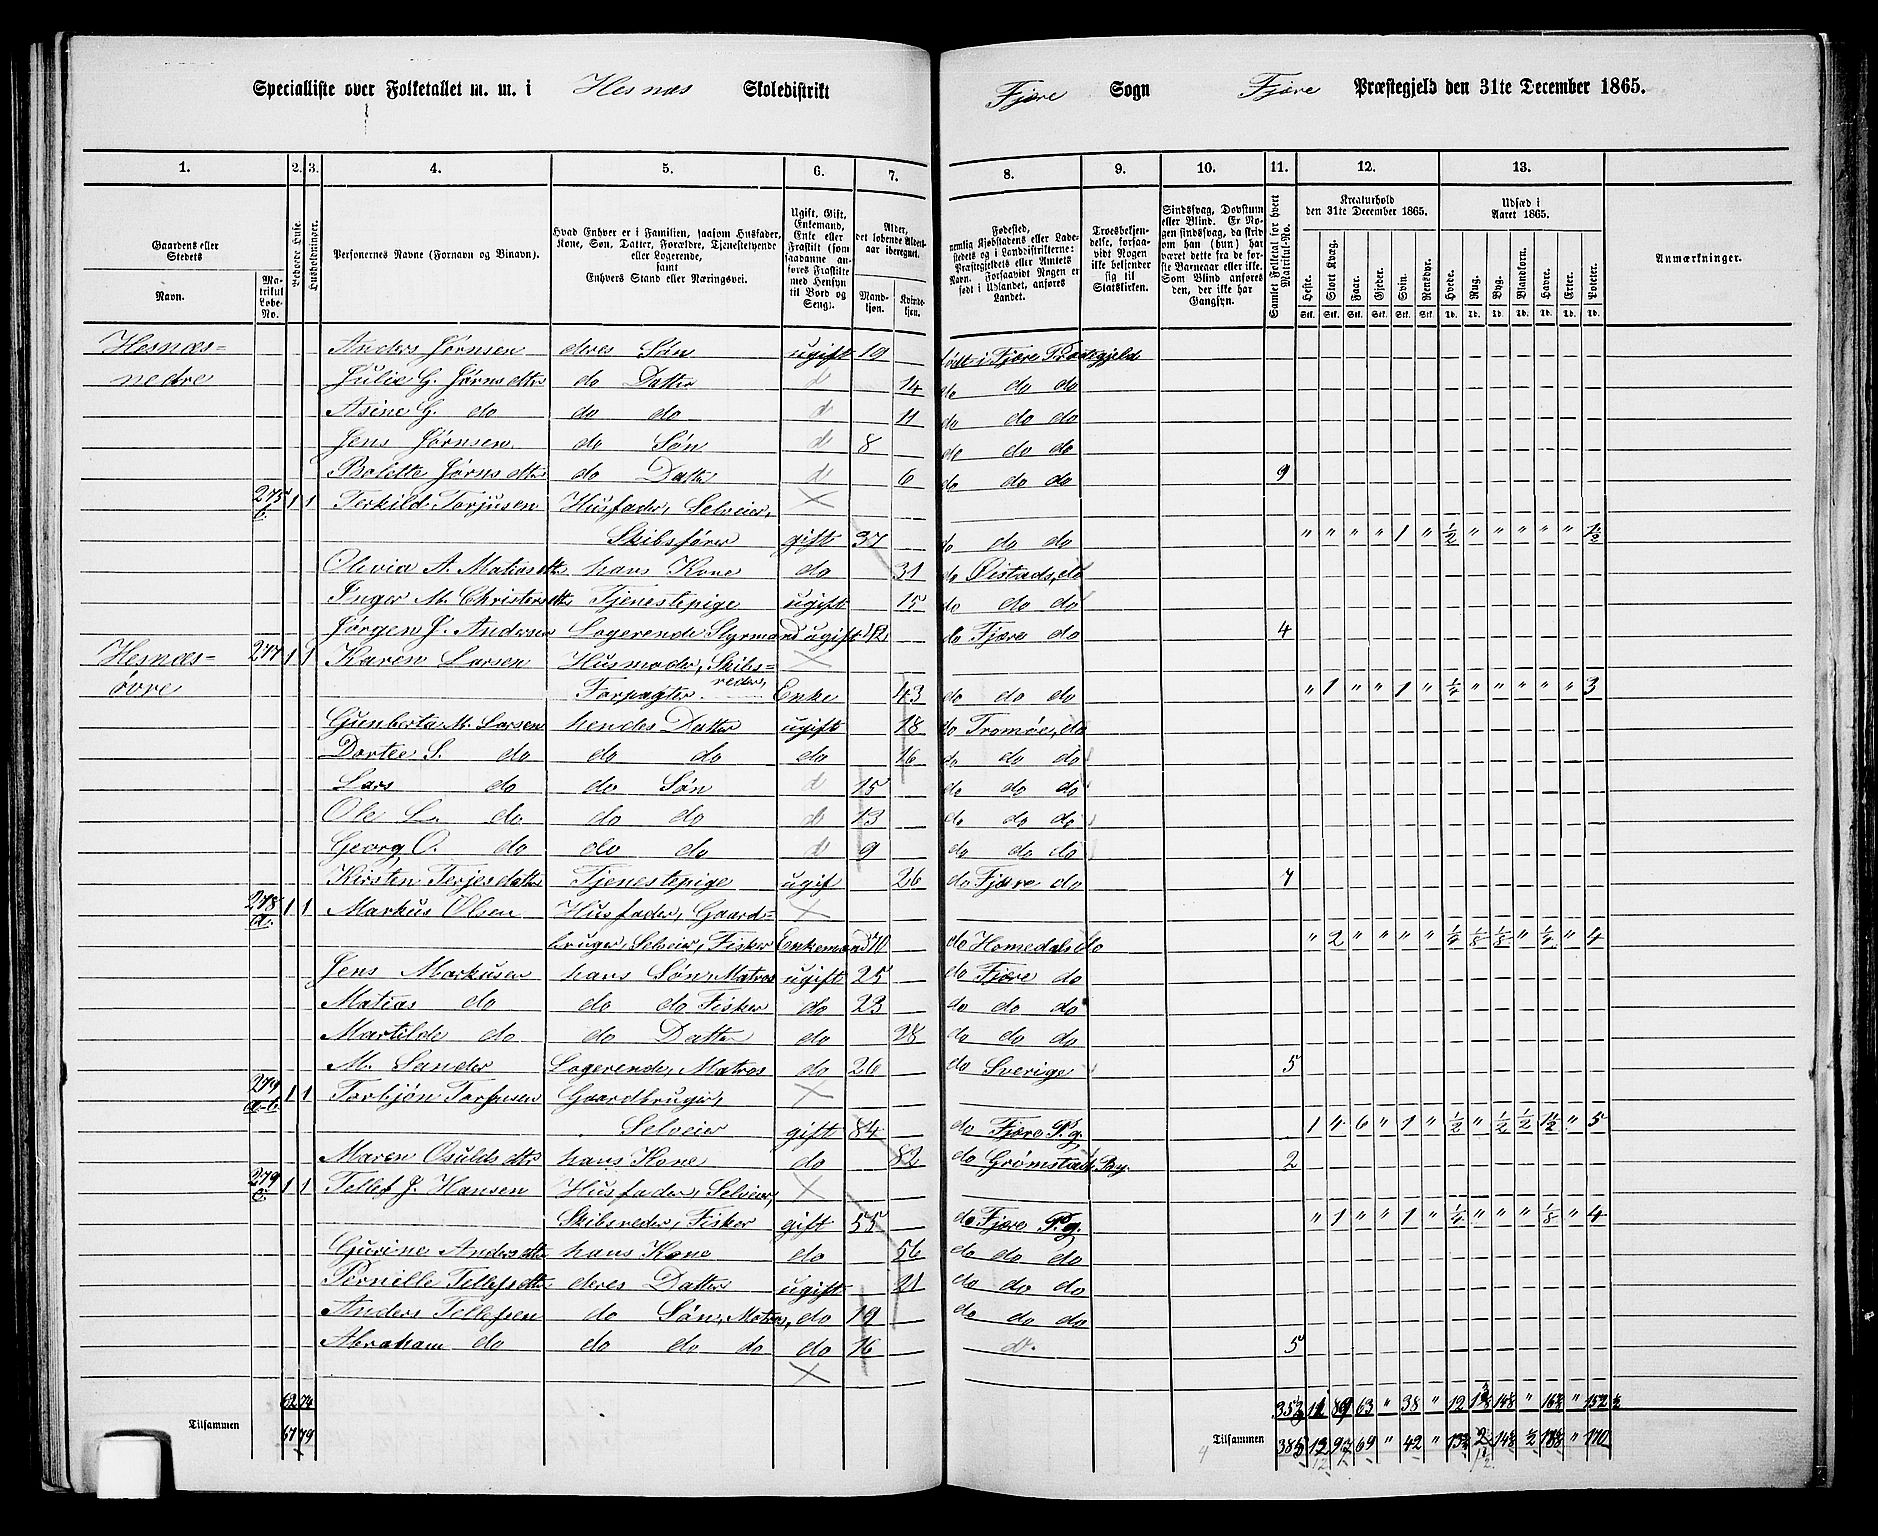 Specialliste over Folketallet m. m. i Hesnæs Skoledistrikt Fjære Sogn Fjære Præstegjeld den 31te December 1865.
1. 2. 3. 4. 5. 6. 7. 8. 9. 10. 11. 12. 13.
Gaardens eller Stedets
Navn. Matrikul Løbe-No.
Beboede Huse.
Husholdninger.
Personernes Navne (Fornavn og Binavn).
Hvad Enhver er i Familien, saasom Husfader, Kone, Søn, Datter, Forældre, Tjenestetyende eller Logerende, samt Enhvers Stand eller Næringsvei.
Ugift, Gift, Enkemand, Enke eller Fraskilt (som saadanne anføres Fraskilte med Hensyn til Bord og Seng).
Alder, det løbende Alders-aar iberegnet.
Mandkjøn. Kvindekjøn.
Fødested, nemlig Kjøbstadens eller Ladestedets og i Landdistrikterne: Præstegjeldets eller Amtets Navn. Forsaavidt Nogen er født i Udlandet, anføres Landet.
Troesbekjendelse, forsaavidt Nogen ikke bekjender sig til Statskirken.
Sindssvag, Døvstum eller Blind. Er Nogen sindssvag, da skriv om han (hun) har været dette fra de første Barneaar eller ikke. Som Blind anføres den, der ikke har Gangsyn.
Samlet Folketal for hvert Matrikul-No.
Kreaturhold den 31te December 1865.
Heste. Stort Kvæg. Faar. Gjeder. Svin. Rensdyr.
Udsæd i Aaret 1865.
Hvede. Rug. Byg. Blandkorn. Havre. Erter. Poteter.
Anmærkninger.
Hesnæs- Anders Jørnsen deres Søn ugift 19 født i Fjære Præstegjeld
nedre Julie G. Jørnsdtter do Datter d 14 do do do
Asine G. do do do d 11 do do do
Jens Jørnsen do Søn d 8 do do do
Bolette Jørnsdtter do Datter d 6 do do do 9
275 b. 1 1 Terkild Torjusen Husfader, Selveier,
Skibsfører gift 37 do do do " " " " 1 " 1/2 " " " " "
Olivia A. Matiasdtr hans Kone do 31 do Øistads, do
Inger M. Christensdtr Tjenestepige ugift 15 do do do
Jørgen J. Andersen Logerende Styrmand ugift 42 do Fjære do 4
Hesnæs- 277 1 1 Karen Larsen Husmoder, Skibs=
øvre reder, Forpagter Enke 43 do do do " 1 " " 1 " 1/4 " " " " " 3
Gunberta M. Larsen hendes Datter ugift 18 do Tromøe, do
Dortee S. do do do do 16 do do do
Lars do do Søn d 15 do do do
Ole L. do do do d 13 do do do
Georg O. do do do d 9 do do do
Kirsten Terjesdatter Tjenestepige ugif 26 do Fjære do 7
278 a. 1 1 Markus Olsen Husfader, Gaard=
bruger, Selveier, Fisker Enkemand 70 do Homedals do " 2 " " " " 1/4 1/8 1/8 " 1/4 " 4
Jens Markusen hans Søn, Matros ugift 25 do Fjære do
Matias do do do Fisker do 23 do do do
Martilde do do Datter do 28 do do do
M. Sander Logerende, Matros do 26 do Sverige 5
279 a-b 1 1 Torbjøn Gaardbruger,
Selveier gift 84 do Fjære P.g. 1 4 6 " 1 " 1/2 " 1/2 1/2 " 5
Maren Osuldsdtr hans Kone do 82 do Grømstad By. 2
279 c. 1 1 Tellef J. Hansen Husfader, Selveier,
Skibsreder, Fisker gift 55 do Fjære P.g. " 1 " " 1 " 1/4 " " " 1/8 " 4
Gurine Andersdtr hans Kone do 56 do do do
Pernille Tellefsdtr deres Datter ugift 21 do do do
Anders Tellefsen do Søn, Matros, do 19 do do do
Abraham do do do do do 16 d. 5
62 74 12 63 " 38 " 12 " "
Tilsammen 67 79 Tilsammen 385 12 69 " 42 " " 170